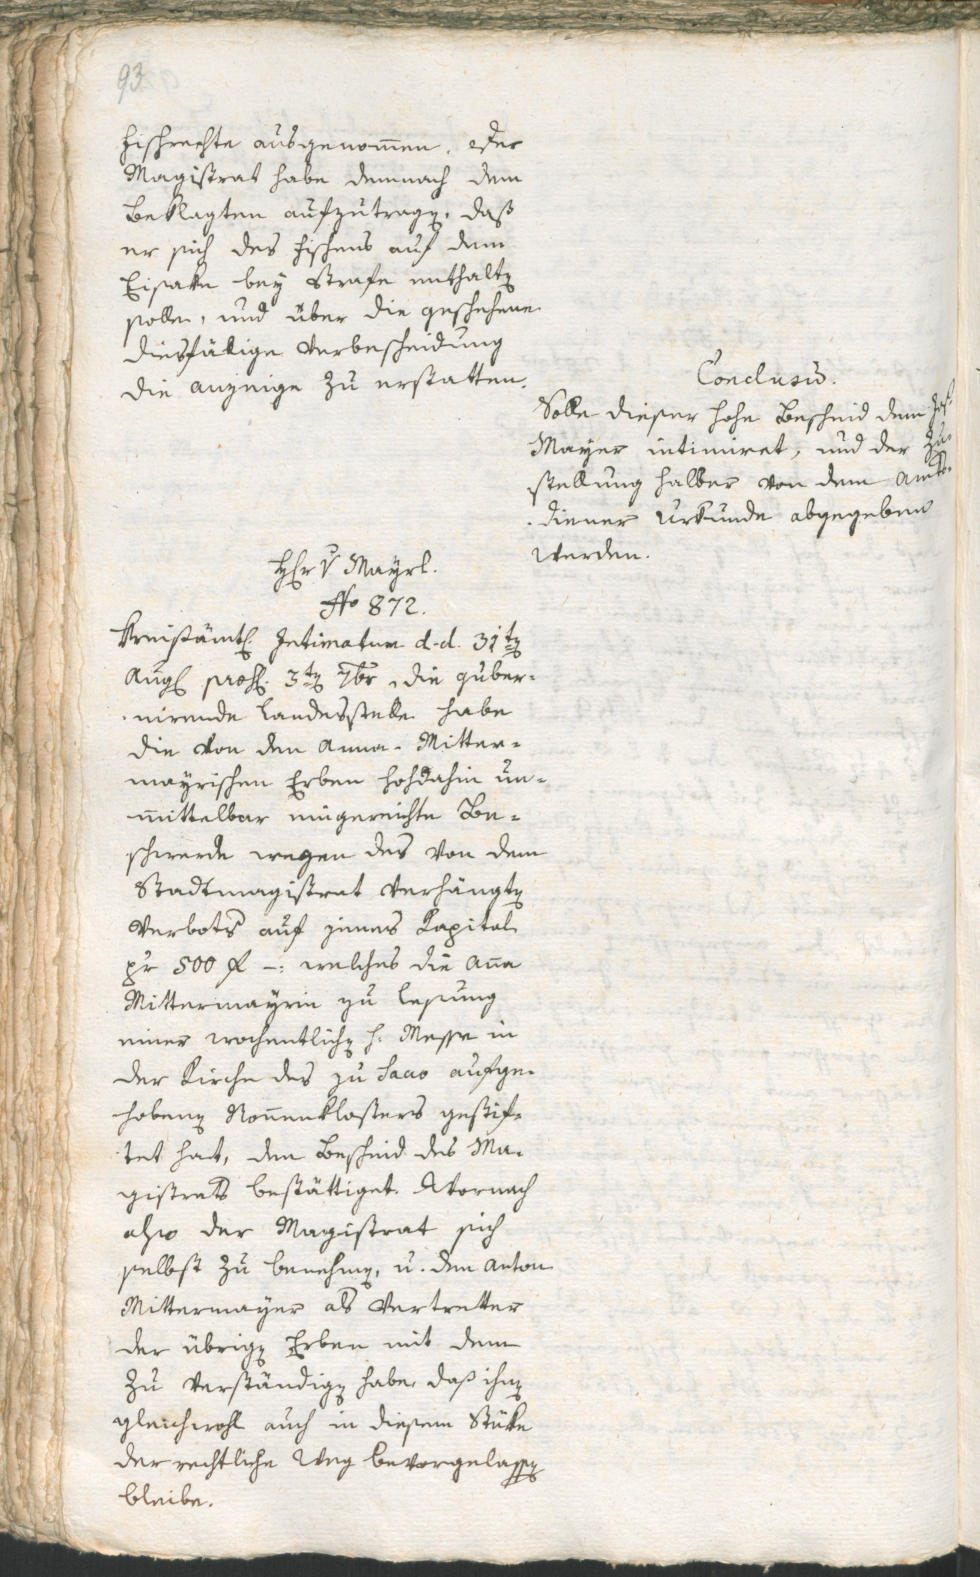 93
fischrechte ausgenom̄en. Der
Magistrat habe demnach dem
Beklagten aufzutragen, daß
er sich des fischens auf dem
Eisake bey Strafe enthalten
solle, und über die geschehene
diesfällige Verbescheidung
die anzeige zu erstatten.
Conclusum.
Solle dieser hohe Bescheid dem Jos:
Mayer intimiret, und der Zu-
stellung halber von dem Amts-
diener Urkunde abgegeben
werden.
H: v Mayrl.
No 872.
Kreisämtl. Intimatum d.d. 31ten
Aug. praes. 3ten 7br, die guber-
nirende Landesstelle habe
die von den Anna-Mitter-
mayrischen Erben hochdahin un-
mittelbar eingereichte Be-
schwerde wegen des von dem
Stadtmagistrat verhängten
Verbots auf jenes Kapital
pr 500 f –: welches die Ana
Mittermayrin zu lesung
einer wochentlichen h. Messe in
der Kirche des zu aufge-
hobenen Non̄enklosters gestif-
tet hat, den Bescheid des Ma-
gistrats bestättiget. Wornach
also der Magistrat sich
selbst zu benehmen, u. den Anton
Mittermayer als Vertretter
der übrigen Erben mit dem
zu verständigen habe, daß ihnen
gleichwohl auch in diesem Stüke
der rechtliche Weg bevorgelassen
bleibe.